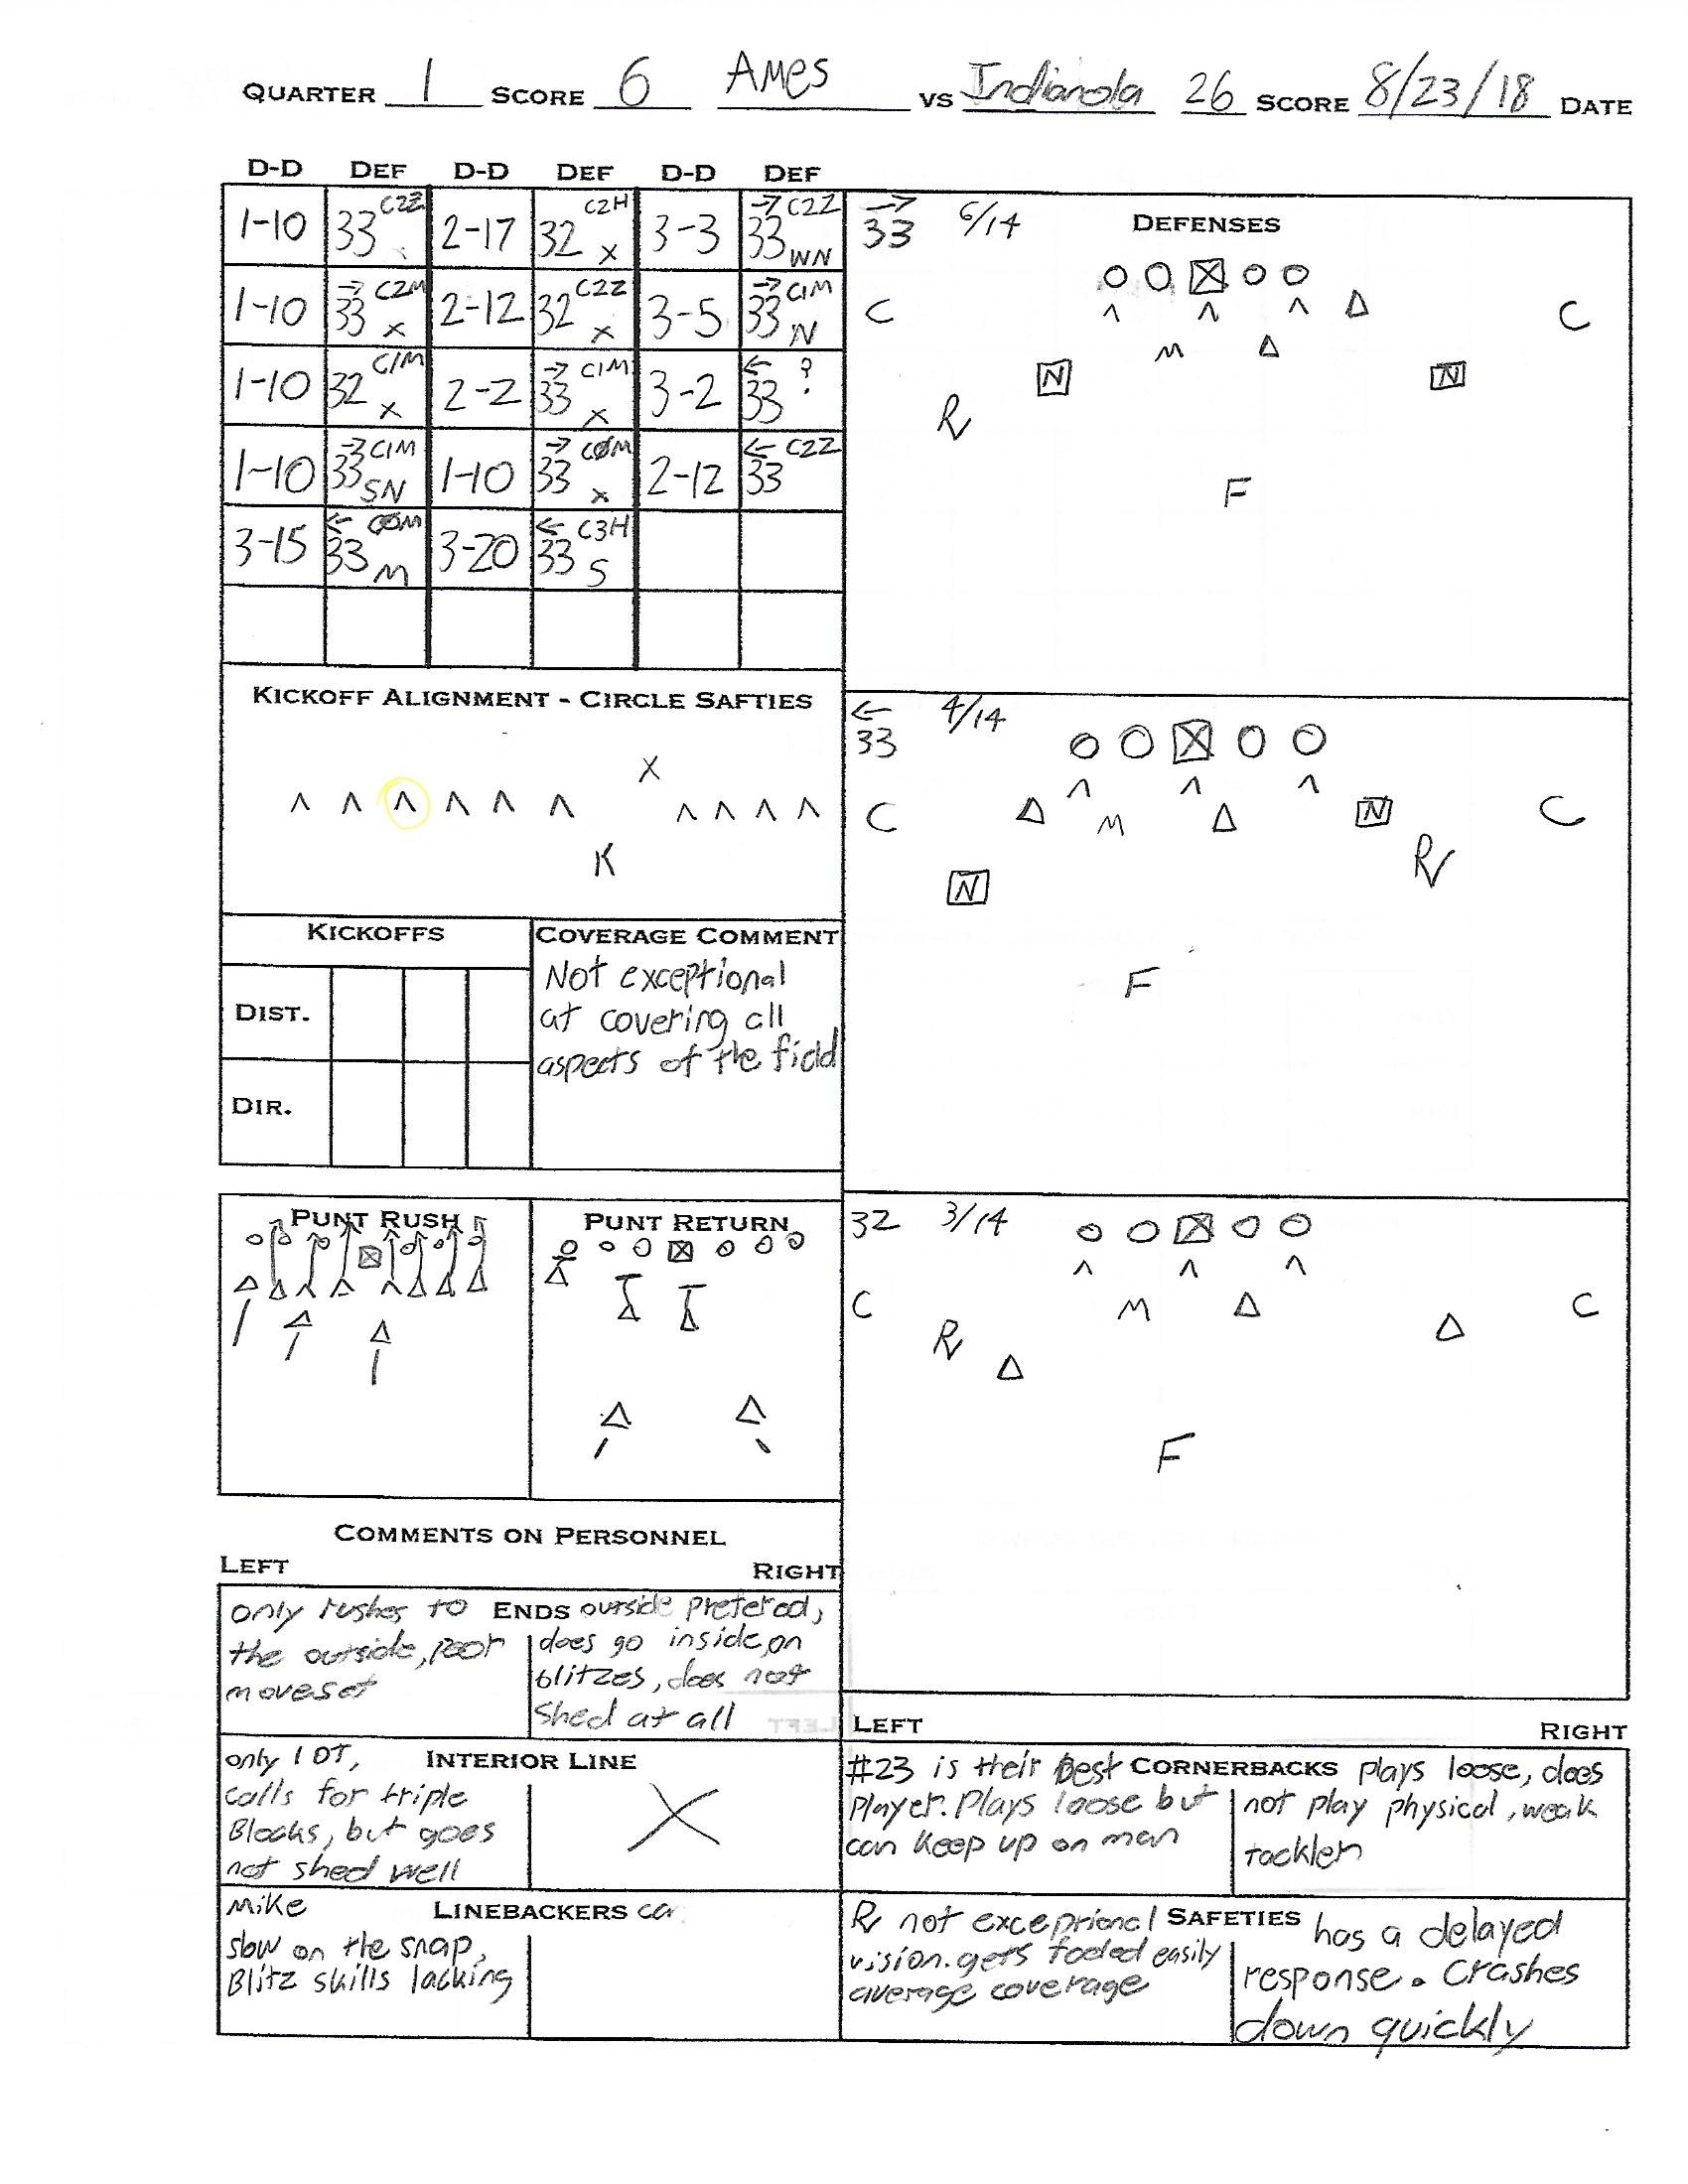 QUARTER 1 SCORE 6 Ames VS Indianola 26 SCORE 8/23/18 DATE
D-D DEF D-D DEF D-D DEF
1-10 33 C2Z 2-17 32 C2H X 3-3 → 33 C2Z WN
1-10 → 33 C2M X 2-12 32 C2Z X 3-5 → 33 C1M N
1-10 32 C1M X 2-2 → 33 C1M X 3-2 ← 33 ?
1-10 → 33 C1M SN 1-10 → 33 CØM X 2-12 ← 33 C2Z
3-15 ← 33 CØM M 3-20 ← 33 C3H S
→ 33 6/14 DEFENSES
C C
M
N N
R
F
KICKOFF ALIGNMENT - CIRCLE SAFTIES
X
K
← 33 4/14
C M N C
R
N
F
KICKOFFS
DIST.
DIR.
COVERAGE COMMENT
Not exceptional
at covering all
aspects of the field
PUNT RUSH
PUNT RETURN
32 3/14
C M C
R
F
COMMENTS ON PERSONNEL
LEFT RIGHT
ENDS
only rushes to
the outside, poor
moveset
outside prefered,
does go inside, on
blitzes, does not
shed at all
INTERIOR LINE
only 1 DT,
calls for triple
Blocks, but goes
not shed well
X
LINEBACKERS
Mike
slow on the snap,
Blitz skills lacking
LEFT RIGHT
CORNERBACKS
#23 is their best
player. Plays loose but
can keep up on man
plays loose, does
not play physical, weak
tackler
SAFETIES
R not exceptional
vision. gets fooled easily
average coverage
has a delayed
response. Crashes
down quickly